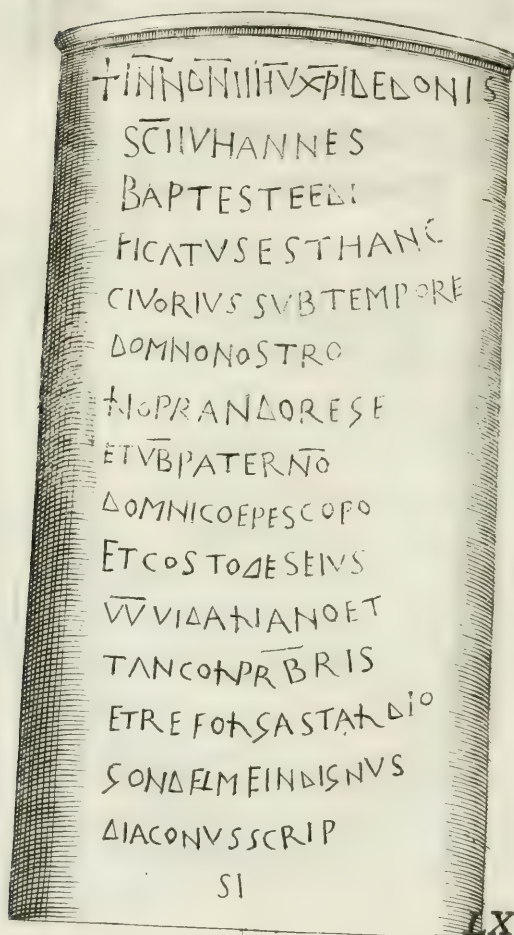 †IN̅N̅DN̅IIIH̅V̅X̅P̅IDEDONIS
SC̅IIVHANNES
BAPTESTEEDI
FICATVSESTHANC
CIVORIVS SVBTEMPORE
DOMNONOSTRO
LIOPRANDOREGE
ETVB̅PATERNO̅
DOMNICOEPESCOPO
ETCOSTODESEIVS
V̅V̅VIDALIANOET
TANCOLPRB̅RIS
ETREFOLGASTALDIO
GONDELMEINDIGNVS
DIACONVSSCRIP
SI
LX